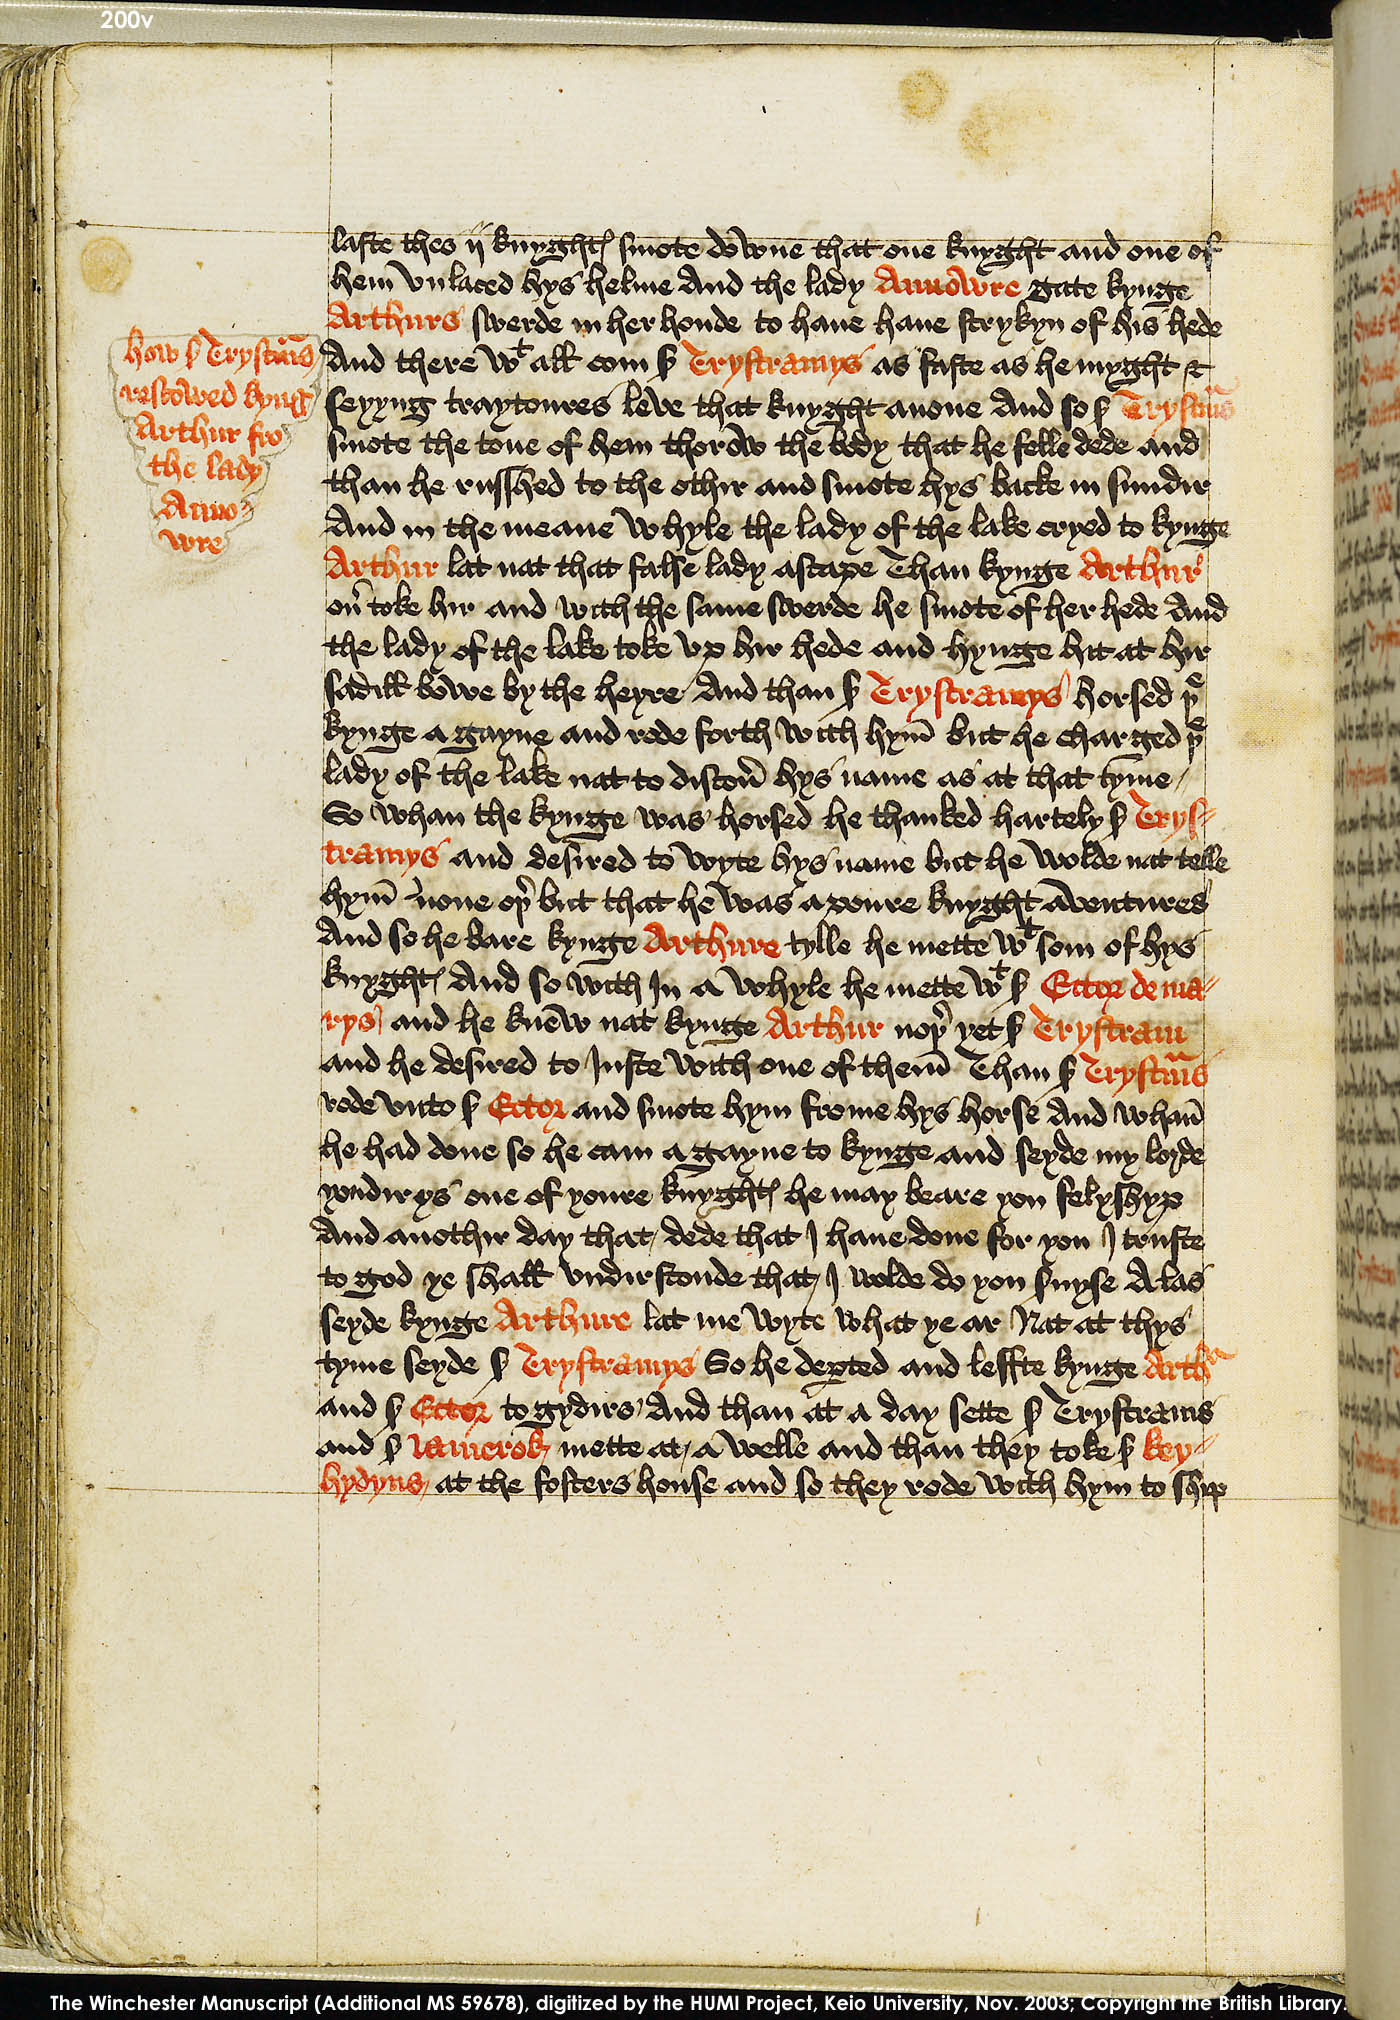 200v
laste thes ij knyghtꝭ smote downe that one knyght and one of
hem̄ vnlaced hys helme And the lady Annowre gate kynge
Arthurs swerde in her honde to haue haue strykyn of his hede
And there wt all com ẜ Trystramys as faste as he myght &
seyyng traytoures leve that knyght anone And so ẜ Trystrās
smote the tone of hem thorow the body that he felle dede and
than he russhed to the othir and smote hys backe in sundir
And in the meane whyle the lady of the lake cryed to kynge
Arthur lat nat that false lady ascape Than kynge Arthur
oū toke hir and with the same swerde he smote of her hede And
the lady of the lake toke vp hir hede and hynge hit at hir
sadill bowe by the heyre And than ẜ Trystramys horsed þe
kynge a gayne and rode forth with hym̄ but he charged þe
lady of the lake nat to discoū hys name as at that tyme /
So whan the kynge was horsed he thanked hartely ẜ Trys-
tramys and desired to wyte hys name but he wolde nat telle
hym̄ none oþ but that he was a poure knyght aventures
And so he bare kynge Arthure tylle he mette wt som of hys
knyghtꝭ And so with In a whyle he mette wt ẜ Ector de ma-
rys / and he knew nat kynge Arthur noþ yet ẜ Trystram
and he desired to Juste with one of them̄ Than ẜ Trystrās
rode vnto ẜ Ector and smote hym frome hys horse And whan̄
he had done so he cam a gayne to kynge and seyde my lorde
yondir ys one of youre knyghtꝭ he may beare you felyshyp
And anothir day that / dede that I haue done for you I truste
to god ye shall vndirstonde that / I wolde do you ẜuyse Alas
seyde kynge Arthure lat me wyte what ye ar Nat at thys
tyme seyde ẜ Trystramys So he deꝑted and leffte kynge Arthr
and ẜ Ector to gydirs / And than at a day sette ẜ Trystrams
and ẜ lamerok / mette at / a welle and than they toke ẜ key-
hydyns / at the fosters house and so they rode with hym to shyp
how ẜ Trystrās
rescowed kyng
Arthur fro
the lady
Anno-
wre
The Winchester Manuscript (Additional MS 59678), digitized by the HUMI Project, Keio University, Nov. 2003; Copyright the British Library.